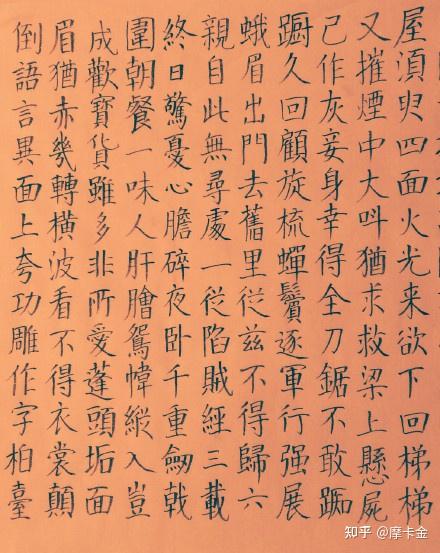 屋湏臾四面火光来欲下回梯梯
又摧煙中大叫猶求救梁上懸屍
己作灰妾身幸得全刀鋸不敢踟
蹰久回顧旋梳蟬鬢逐軍行强展
蛾眉出門去舊里従兹不得歸六
親自此無尋處一従陷賊經三載
終日驚憂心膽碎夜卧千重劒戟
圍朝餐一味人肝膾鴛幃縱入豈
成歡寶貨雖多非所愛蓬頭垢面
眉猶赤幾轉橫波看不得衣裳顛
倒語言異面上夸功雕作字柏臺
知乎 @摩卡金